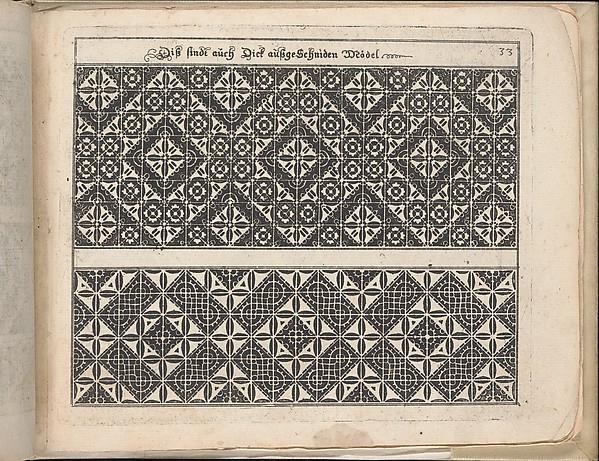 Diß sindt auch Dick außgeschniden Mödel 33